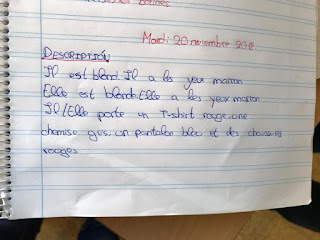 Mardi 20 novembre 2012.
DESCRIPTIÓN
Il est blond. Il a les yeux marron
Elle est blonde. Elle a les yeux marron
Il/Elle porte un T-shirt rouge, une
chemise gris, un pantalon bleu et des chaussures
rouges